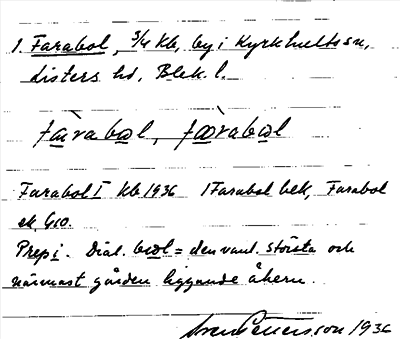 1. Farabol, 3/4 kb, by i Kyrkhults sn,
Listers hd, Blek. l.
fàrabωl, fæ̀rabωl
Farabol I kb 1936 1 Farabol bek, Farabol
ek, G10.
Prep i. Dial. bωl = den vanl. största och
närmast gården liggande åkern.
Sven Petersson 1936